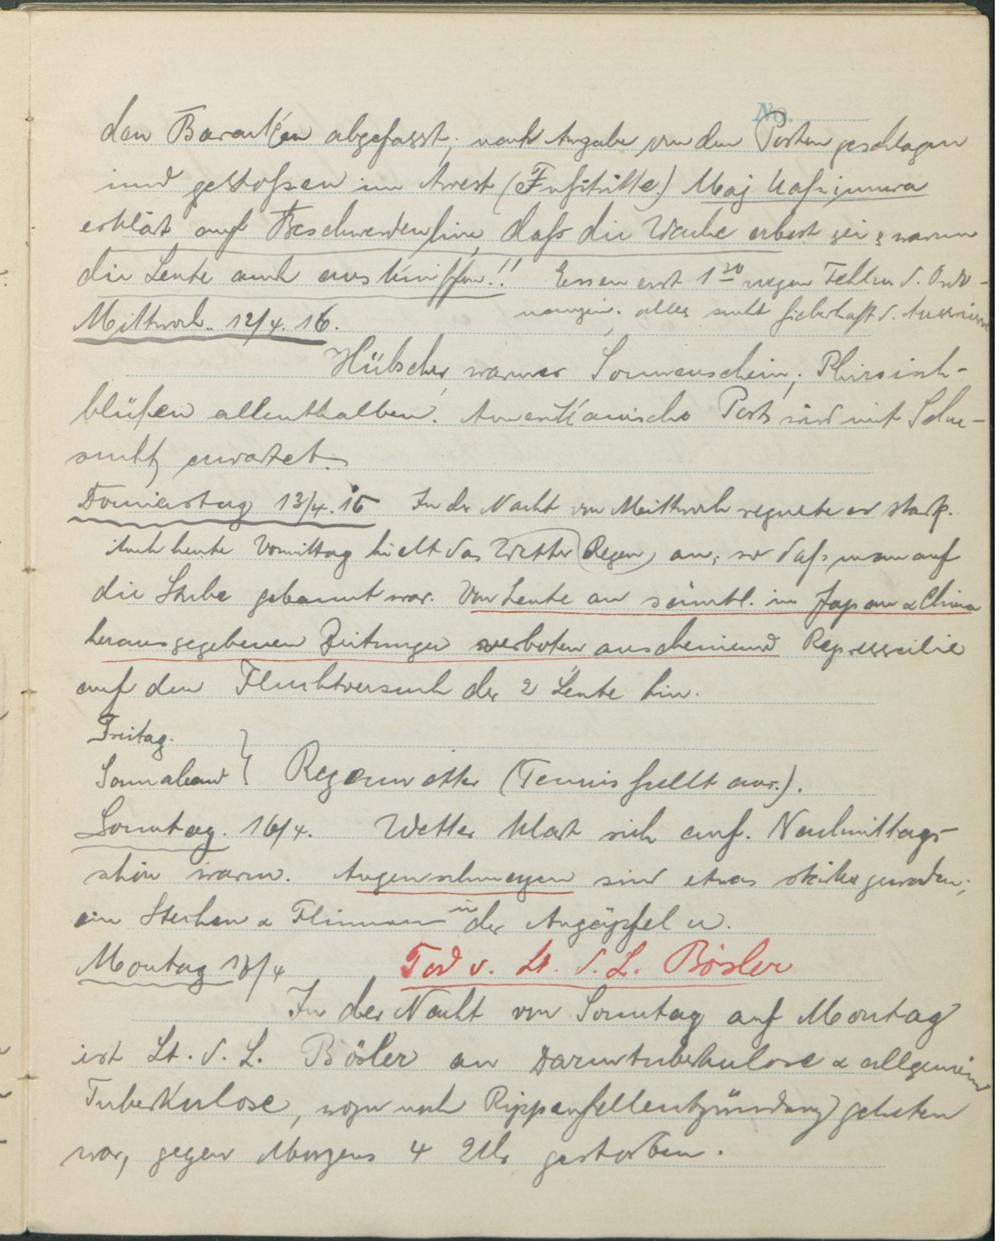 No.
den Baracken abgefasst, nach Angabe von den Posten geschlagen
und gestoßen im Arrest (Fußtritte.) Maj
erklärt auf Beschwerden hin, daß die Wache erbost sei, warum
die Leute auch auskniffen!! Essen erst 1 30 wegen Fehlen d. Ordo-
nanzen; alles sucht fieberhaft d. Ausreisser
Mittwoch. 12/4. 16.
Hübscher, warmer Sonnenschein; Pfirsich-
blüten allenthalben. Amerikanische Post wird mit Sehn-
sucht erwartet.
Donnerstag 13/4. 16 In der Nacht von Mittwoch regnete es stark.
Auch heute Vormittag hielt das Wetter (Regen) an, so daß man auf
die Stube gebannt war. Von heute an sämtl. in Japan & China
herausgegebenen Zeitungen verboten anscheinend Repressalie
auf den Fluchtversuch der 2 Leute hin.
Freitag.
Sonnabend } Regenwetter (Tennis fällt aus.).
Sonntag. 16/4. Wetter klärt sich auf. Nachmittags
schön warm. Augenschmerzen sind etwas stärker geworden;
ein Stechen & Flimmern in der Augäpfel u.
Montag 17/4 Tod v. Lt. d. L. Bösler
In der Nacht von Sonntag auf Montag
ist Lt. d. L. Bösler an Darmtuberkulose & allgemein
Tuberkulose, wozu noch Rippenfellentzündung getreten
war, gegen Morgens 4 Uhr gestorben.